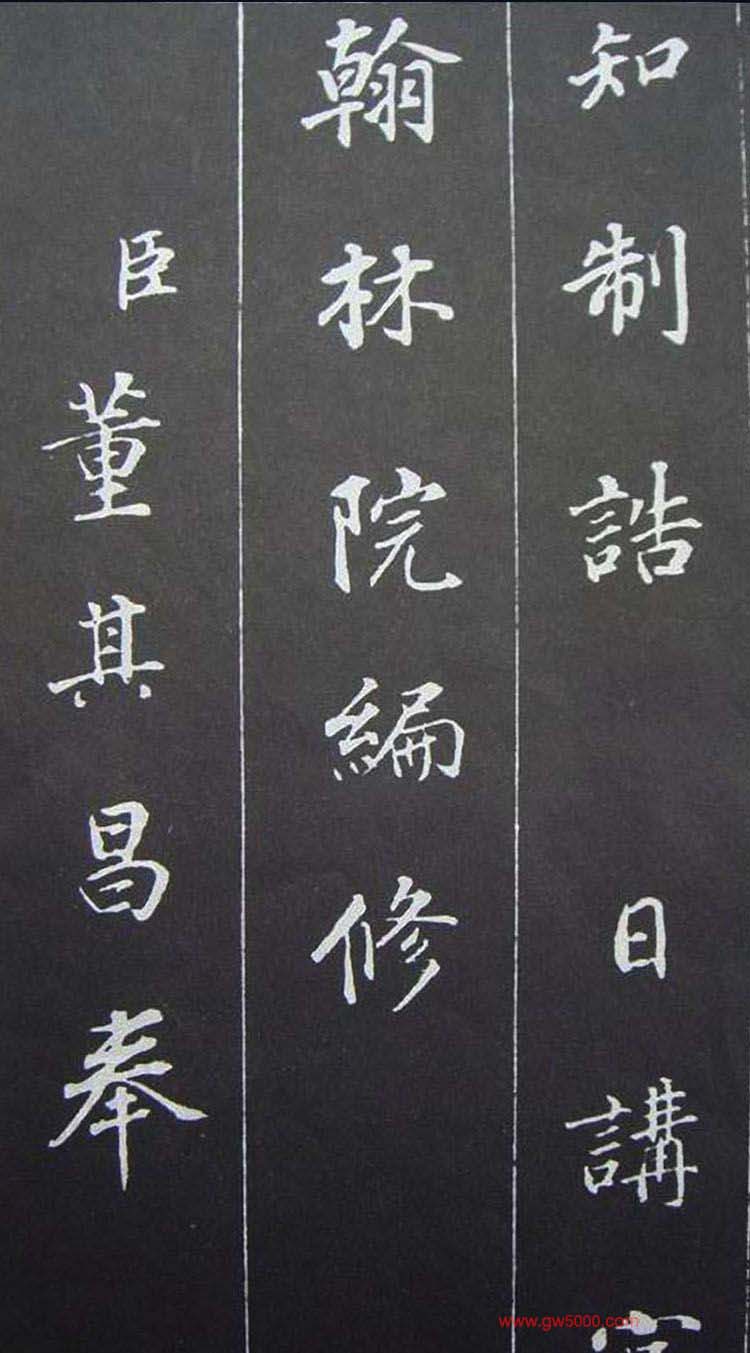 知制誥 日講
翰林院編修
臣董其昌奉
www.gw5000.com